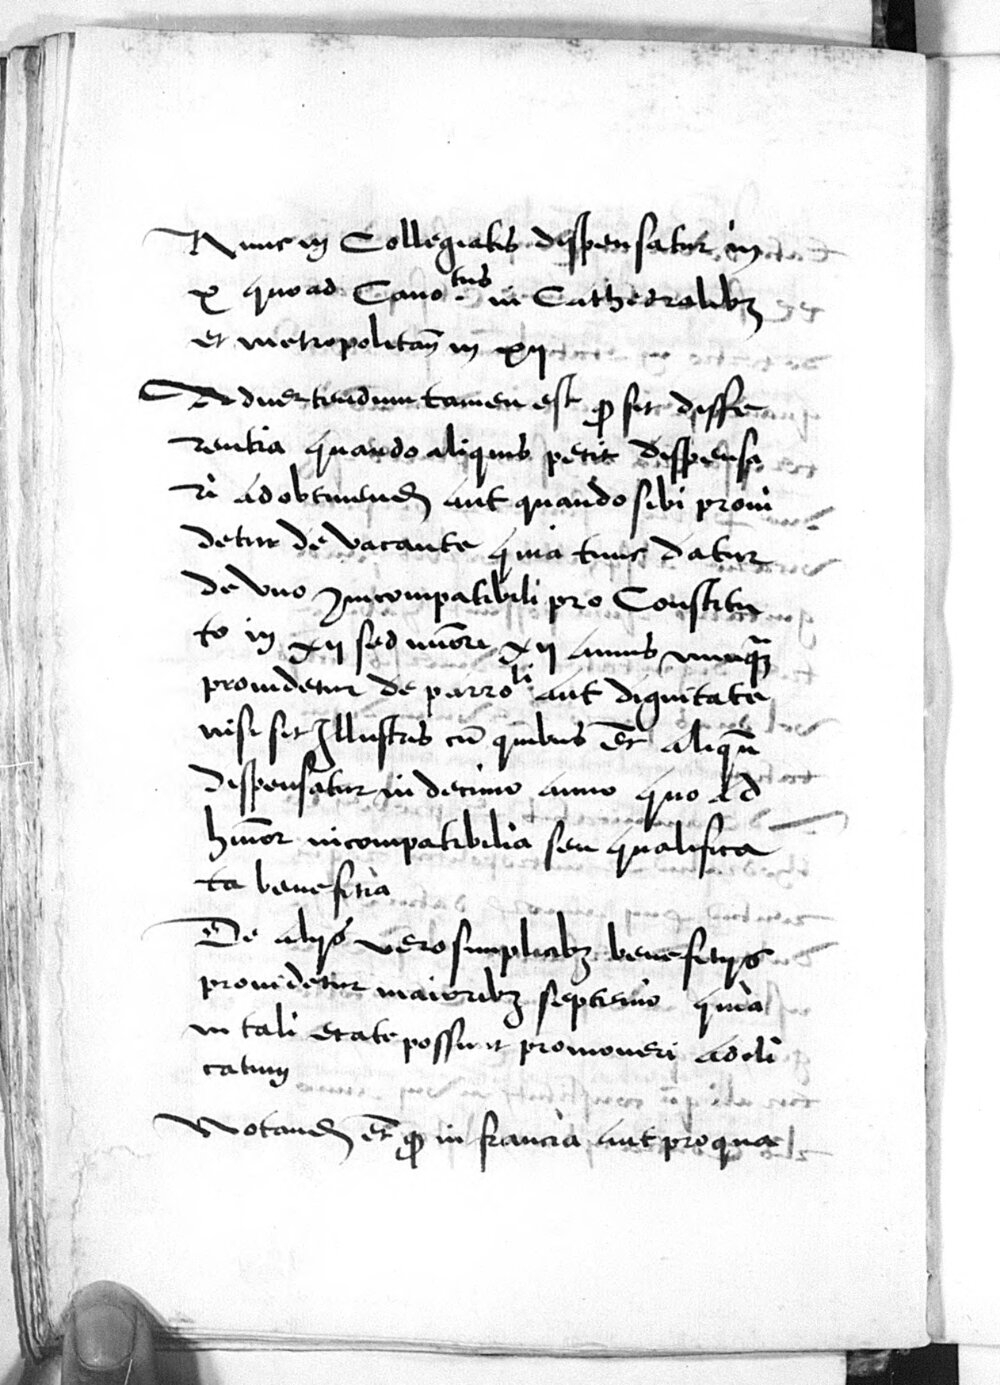 Nunc in Collegiatis dispensatur in
x quo ad Cano^tus in Cathedralibꝫ
et metropolitañ in xij
Aduertendum tamen est ꝙ sit diffe
rentia quando aliquis petit dispensa
ri ad obtinend aut quando sibi proui
detur de vacante quia tunc datur
de vno Jncompatibili pro Constitu
to in xij sed minori xij annis nunqꝫ
prouidetur de parro^li aut dignitate
nisi sit Jllustris cū quibus et̄ aliqñ
dispensatur in decimo anno quo ad
hmōi incompatibilia seu qualifica
ta benefitia
De alijs vero simplicibꝫ benefitijs
prouidetur maioribꝫ septenio quia
in tali etate possunt promoueri ad cli
catum
Notand et̄ ꝙ in francia aut pro qua